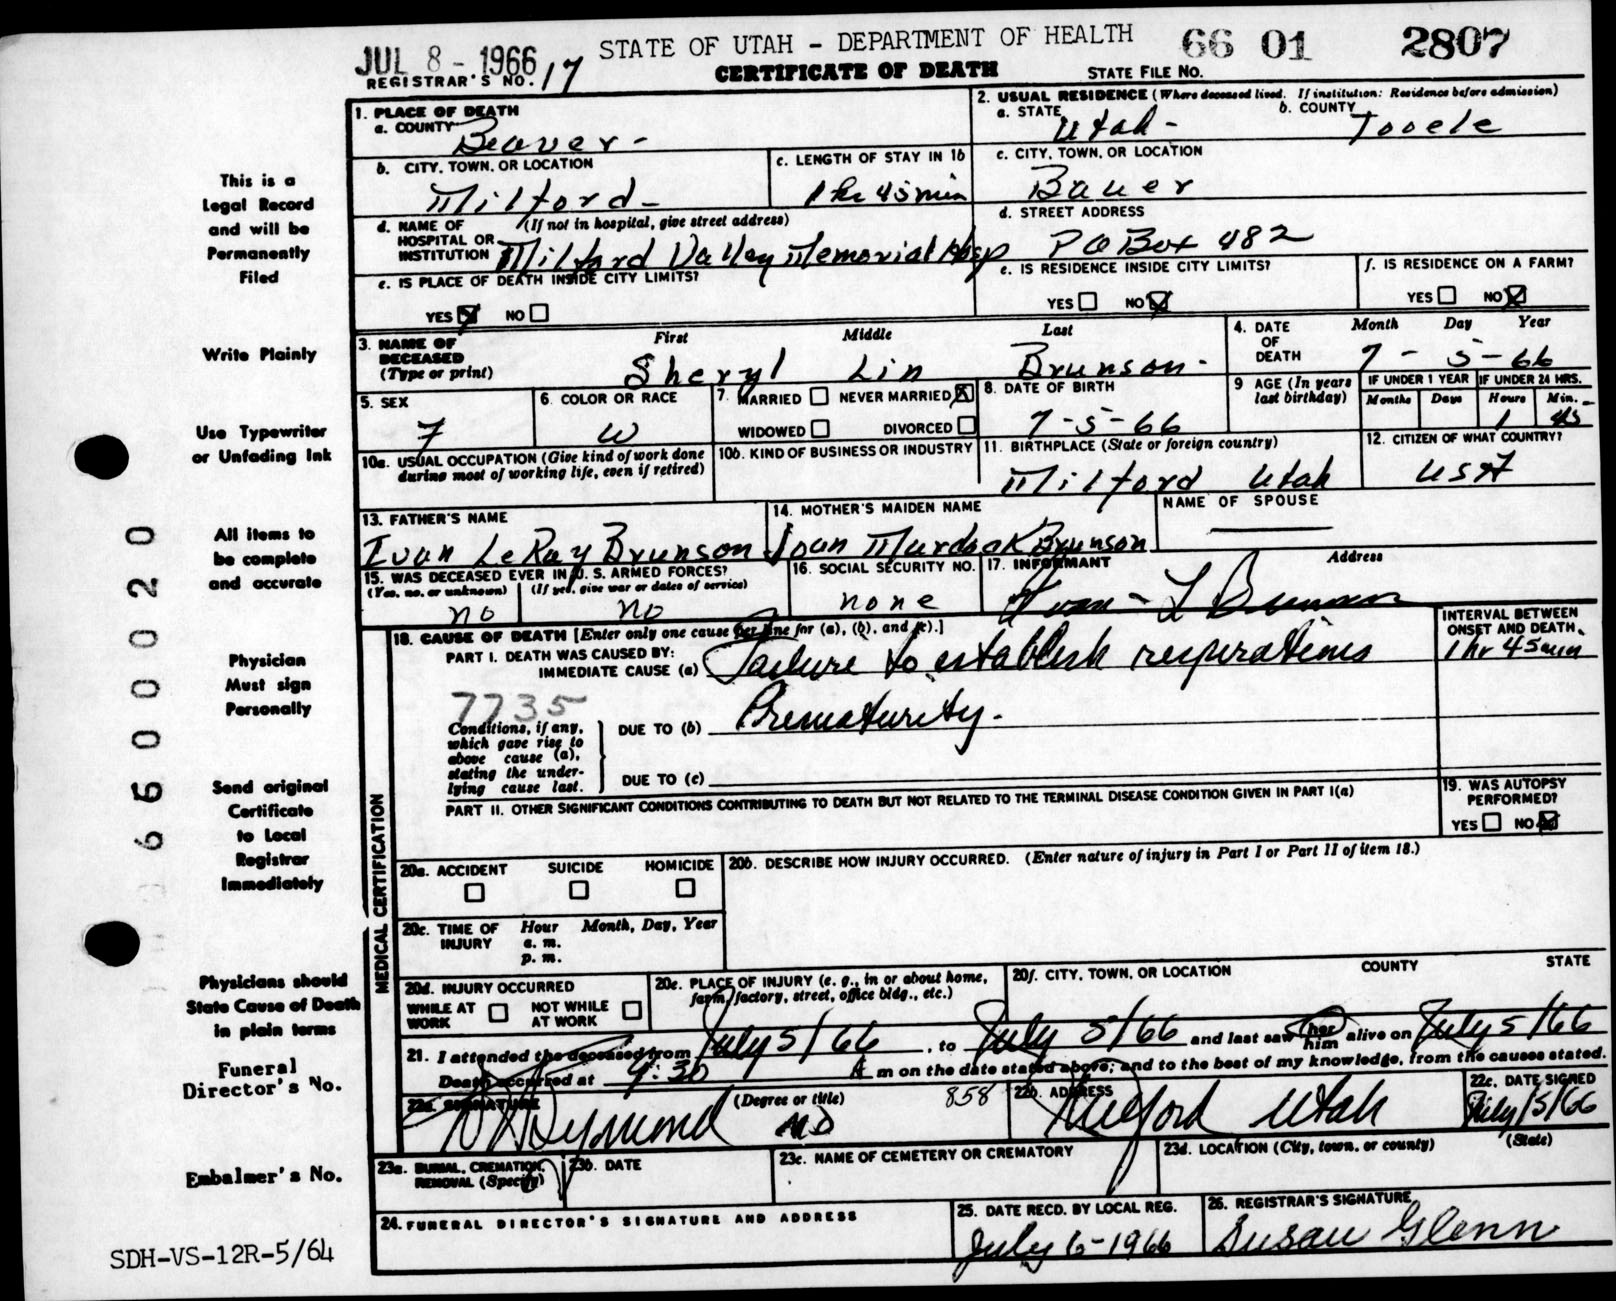 JUL 8 - 1966
REGISTRAR'S NO. 17
STATE OF UTAH - DEPARTMENT OF HEALTH
CERTIFICATE OF DEATH
66 01 2807
STATE FILE NO.
1. PLACE OF DEATH
a. COUNTY
Beaver -
2. USUAL RESIDENCE (Where deceased lived. If institution: Residence before admission)
a. STATE
Utah -
b. COUNTY
Tooele
b. CITY, TOWN, OR LOCATION
Milford -
c. LENGTH OF STAY IN 1b
1 hr 45 min
c. CITY, TOWN, OR LOCATION
Bauer
d. NAME OF HOSPITAL OR INSTITUTION
(If not in hospital, give street address)
Milford Valley Memorial Hosp
d. STREET ADDRESS
P O Box 482
e. IS PLACE OF DEATH INSIDE CITY LIMITS?
YES NO
e. IS RESIDENCE INSIDE CITY LIMITS?
YES NO
f. IS RESIDENCE ON A FARM?
YES NO
3. NAME OF DECEASED (Type or print)
First Middle Last
Sheryl Lin Brunson -
4. DATE OF DEATH
Month Day Year
7 - 5 - 66
5. SEX
F
6. COLOR OR RACE
W
7. MARRIED NEVER MARRIED
WIDOWED DIVORCED
8. DATE OF BIRTH
7 - 5 - 66
9 AGE (In years last birthday)
IF UNDER 1 YEAR
Months Days
IF UNDER 24 HRS.
Hours Min.
1 45
10a. USUAL OCCUPATION (Give kind of work done during most of working life, even if retired)
10b. KIND OF BUSINESS OR INDUSTRY
11. BIRTHPLACE (State or foreign country)
Milford Utah
12. CITIZEN OF WHAT COUNTRY?
USA
13. FATHER'S NAME
Ivan LeRay Brunson
14. MOTHER'S MAIDEN NAME
Joan Murdock Brunson
NAME OF SPOUSE
15. WAS DECEASED EVER IN U. S. ARMED FORCES?
(Yes, no, or unknown) (If yes, give war or dates of service)
no no
16. SOCIAL SECURITY NO.
none
17. INFORMANT Address
Ivan L Brunson
18. CAUSE OF DEATH [Enter only one cause per line for (a), (b), and (c).]
PART I. DEATH WAS CAUSED BY:
IMMEDIATE CAUSE (a) Failure to establish respirations
INTERVAL BETWEEN ONSET AND DEATH
1 hr 45 min
7735
Conditions, if any, which gave rise to above cause (a), stating the underlying cause last.
DUE TO (b) Prematurity.
DUE TO (c)
PART II. OTHER SIGNIFICANT CONDITIONS CONTRIBUTING TO DEATH BUT NOT RELATED TO THE TERMINAL DISEASE CONDITION GIVEN IN PART I(a)
19. WAS AUTOPSY PERFORMED?
YES NO
MEDICAL CERTIFICATION
20a. ACCIDENT SUICIDE HOMICIDE
20b. DESCRIBE HOW INJURY OCCURRED. (Enter nature of injury in Part I or Part II of item 18.)
20c. TIME OF INJURY
Hour Month, Day, Year
a. m.
p. m.
20d. INJURY OCCURRED
WHILE AT WORK NOT WHILE AT WORK
20e. PLACE OF INJURY (e. g., in or about home, farm, factory, street, office bldg., etc.)
20f. CITY, TOWN, OR LOCATION COUNTY STATE
21. I attended the deceased from July 5/66, to July 5/66 and last saw her him alive on July 5/66
Death occurred at 9:30 m on the date stated above; and to the best of my knowledge, from the causes stated.
22a. SIGNATURE (Degree or title)
MD
858
22b. ADDRESS
Milford Utah
22c. DATE SIGNED
July/5/66
23a. BURIAL, CREMATION, REMOVAL (Specify)
23b. DATE
23c. NAME OF CEMETERY OR CREMATORY
23d. LOCATION (City, town, or county) (State)
24. FUNERAL DIRECTOR'S SIGNATURE AND ADDRESS
25. DATE RECD. BY LOCAL REG.
July 6-1966
26. REGISTRAR'S SIGNATURE
Susan Glenn
This is a
Legal Record
and will be
Permanently
Filed
Write Plainly
Use Typewriter
or Unfading Ink
All items to
be complete
and accurate
Physician
Must sign
Personally
Send original
Certificate
to Local
Registrar
Immediately
Physicians should
State Cause of Death
in plain terms
Funeral
Director's No.
Embalmer's No.
SDH-VS-12R-5/64
66000020